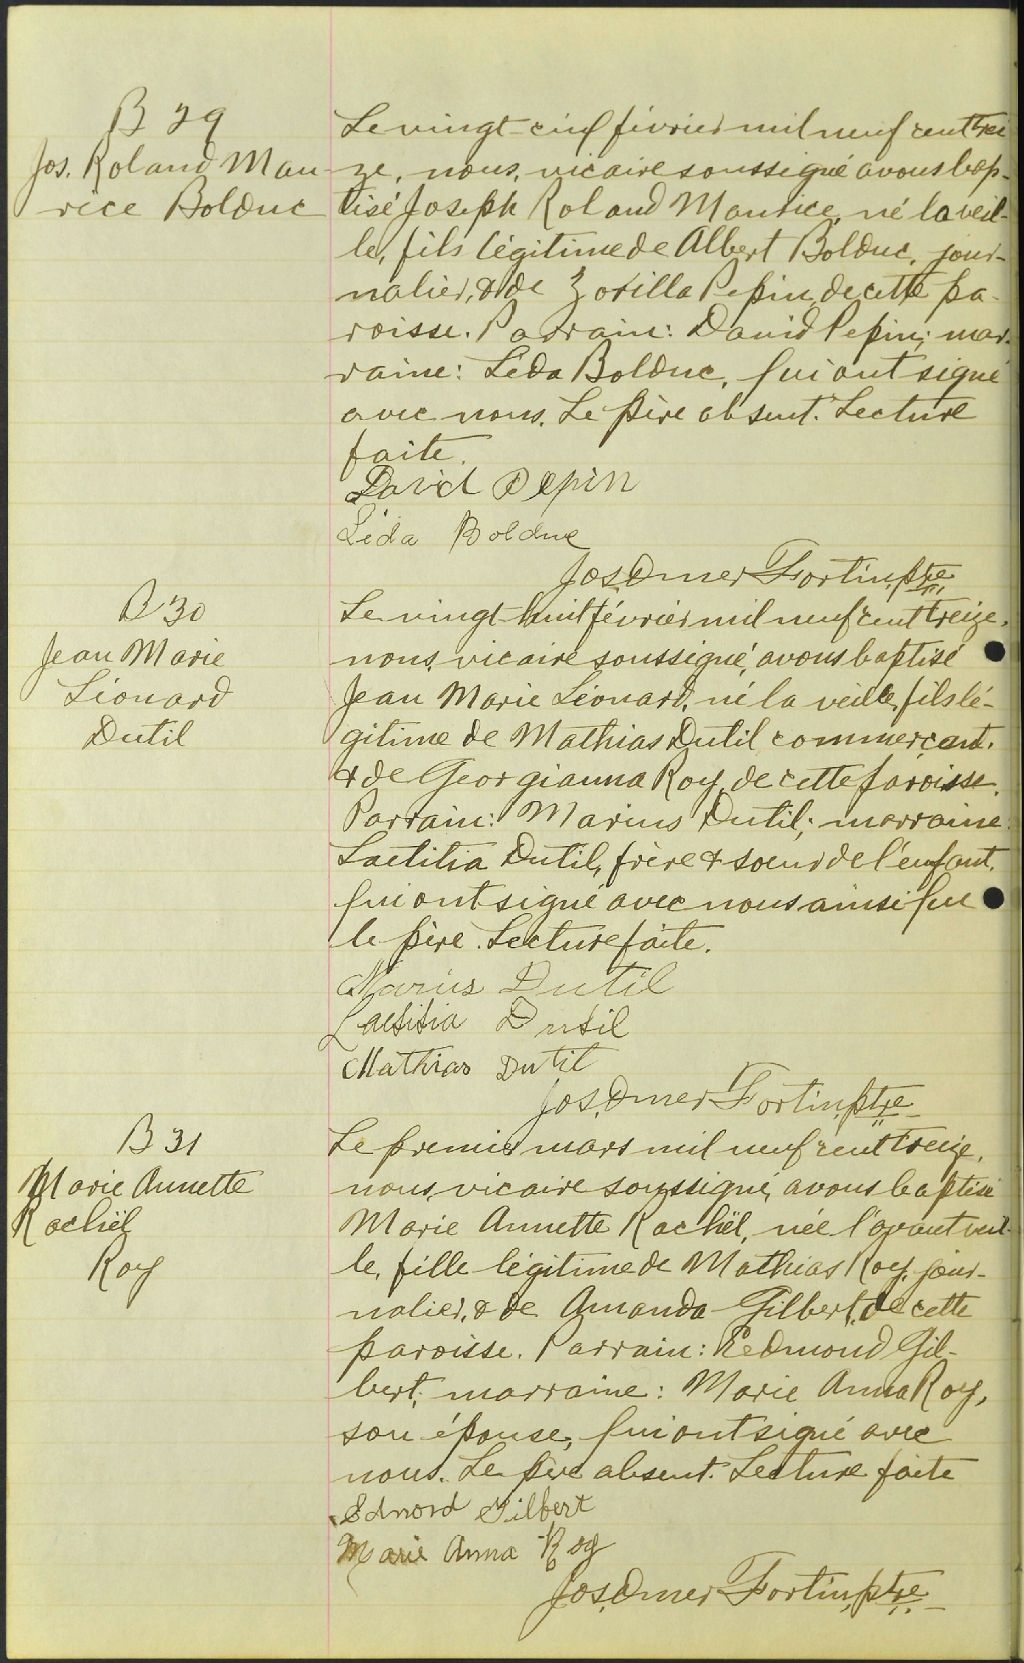 B 29
Jos. Roland Mau
rice Bolduc
Le vingt-cinq février mil neuf cent trei
ze, nous, vicaire soussigné avons bap-
tisé Joseph Roland Maurice, né la veil-
le, fils légitime de Albert Bolduc, jour-
nalier, & de Zorilla Pepin, de cette pa-
roisse. Parrain: David Pepin; mar-
raine: Léda Bolduc, qui ont signé
avec nous. Le père absent. Lecture
faite.
David Pepin
Léda Bolduc
Jos. Omer Fortin, ptre
B 30
Jean Marie
Léonard
Dutil
Le vingt-huit février mil neuf cent treize,
nous, vicaire soussigné, avons baptisé
Jean Marie Léonard, né la veille, fils lé-
gitime de Mathias Dutil commerçant,
& de Georgianna Roy, de cette paroisse.
Parrain: Marius Dutil; marraine:
Laetitia Dutil, frère & soeur de l'enfant,
qui ont signé avec nous ainsi que
le père. Lecture faite.
Marius Dutil
Laetitia Dutil
Mathias Dutil
Jos. Omer Fortin, ptre
B 31
Marie Annette
Rachël
Roy
Le premier mars mil neuf cent treize,
nous, vicaire soussigné, avons baptisé
Marie Annette Rachël, née l'avant veil-
le, fille légitime de Mathias Roy, jour-
nalier, & de Amanda Gilbert, de cette
paroisse. Parrain: Edmond Gil-
bert; marraine: Marie Anna Roy,
son épouse, qui ont signé avec
nous. Le père absent. Lecture faite
Edmond Gilbert
Marie Anna Roy
Jos. Omer Fortin, ptre